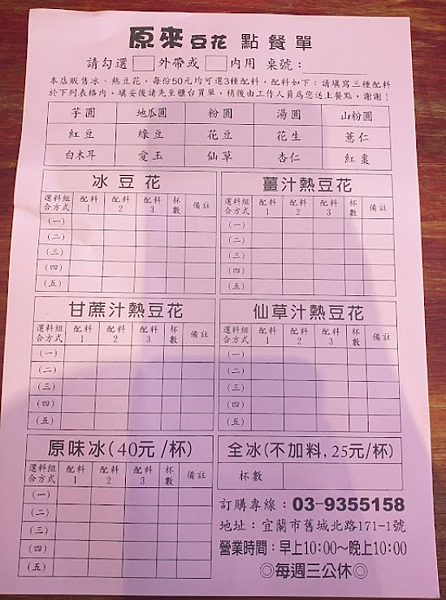 原來豆花 點餐單
請勾選□外帶或□內用 桌號：
本店販售冰、熱豆花，每份50元均可選3種配料，配料如下：請填寫三種配料
於下列表格內，填妥後請先至櫃台買單，稍後由工作人員為您送上餐點，謝謝！
芋圓 地瓜圓 粉圓 湯圓 山粉圓
紅豆 綠豆 花豆 花生 薏仁
白木耳 愛玉 仙草 杏仁 紅棗
冰豆花
選料組合方式 配料1 配料2 配料3 杯數 備註
(一)
(二)
(三)
(四)
(五)
薑汁熱豆花
選料組合方式 配料1 配料2 配料3 杯數 備註
(一)
(二)
(三)
(四)
(五)
甘蔗汁熱豆花
選料組合方式 配料1 配料2 配料3 杯數 備註
(一)
(二)
(三)
(四)
(五)
仙草汁熱豆花
選料組合方式 配料1 配料2 配料3 杯數 備註
(一)
(二)
(三)
(四)
(五)
原味冰(40元/杯)
選料組合方式 配料1 配料2 配料3 杯數 備註
(一)
(二)
(三)
(四)
(五)
全冰(不加料,25元/杯)
杯數
訂購專線：03-9355158
地址：宜蘭市舊城北路171-1號
營業時間：早上10:00～晚上10:00
◎每週三公休◎